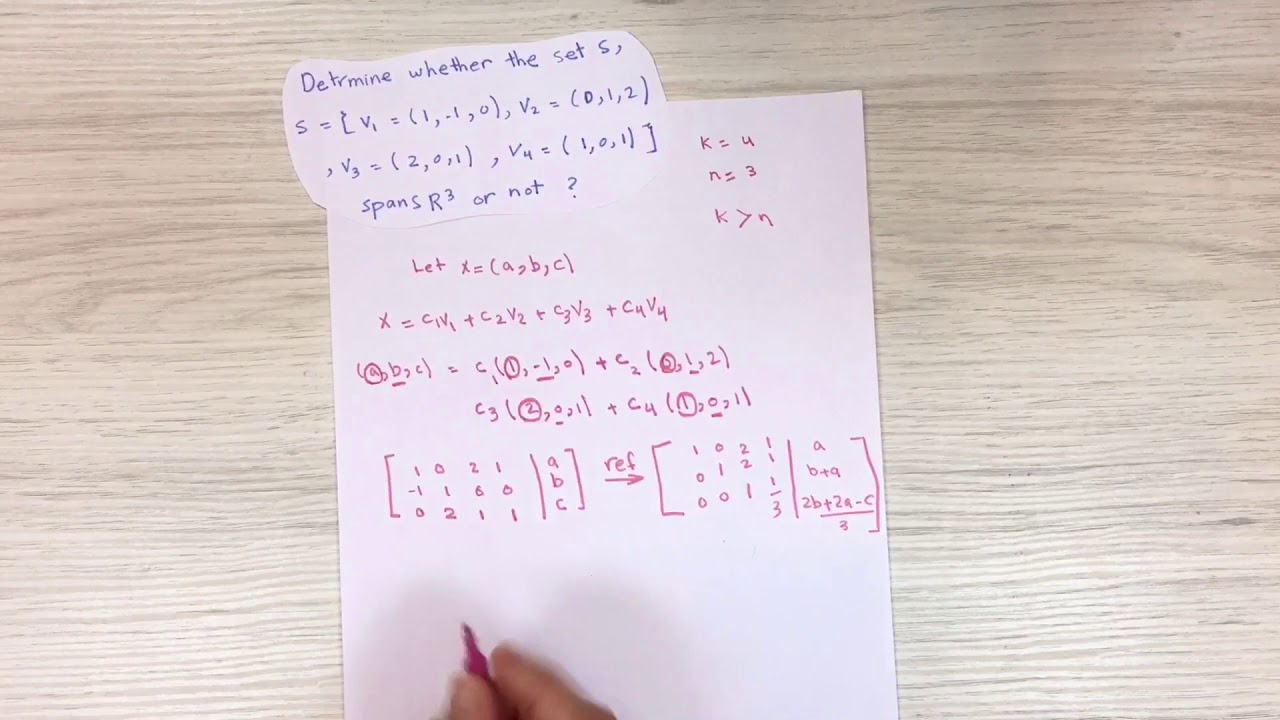 Detrmine whether the set S,
S = [ V1 = (1,-1,0), V2 = (0,1,2)
, V3 = (2,0,1) , V4 = (1,0,1) ]
spans R³ or not ?
k = 4
n = 3
k > n
Let x = (a,b,c)
x = c1V1 + c2V2 + c3V3 + c4V4
(a,b,c) = c1(1,-1,0) + c2(0,1,2)
c3(2,0,1) + c4(1,0,1)
[ 1 0 2 1 | a ] ref [ 1 0 2 1 | a ]
[ -1 1 0 0 | b ] → [ 0 1 2 1 | b+a ]
[ 0 2 1 1 | c ] [ 0 0 1 1/3 | (2b+2a-c)/3 ]